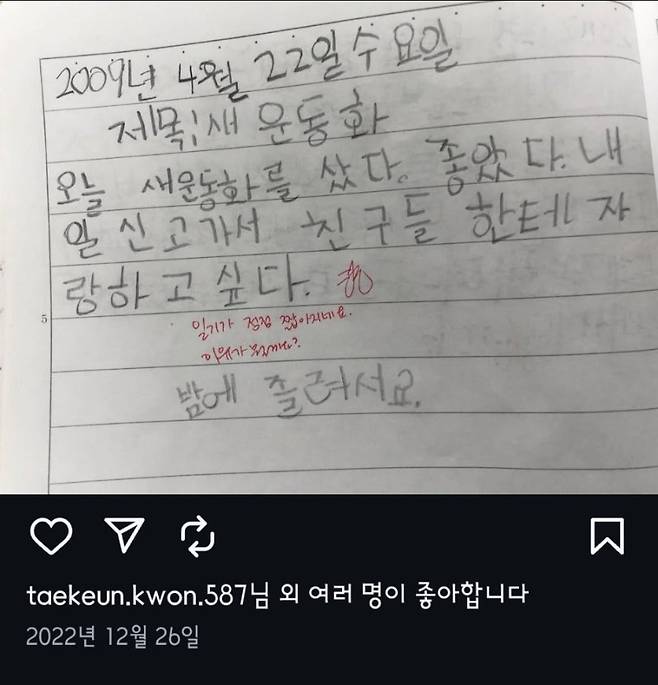 2009년 4월 22일 수요일
제목: 새 운동화
오늘 새운동화를 샀다. 좋았다. 내
일 신고가서 친구들 한테 자
랑하고 싶다.
5
일기가 점점 짧아지네요.
이유가 뭔가요?
밤에 졸려서요.
taekeun.kwon.587님 외 여러 명이 좋아합니다
2022년 12월 26일